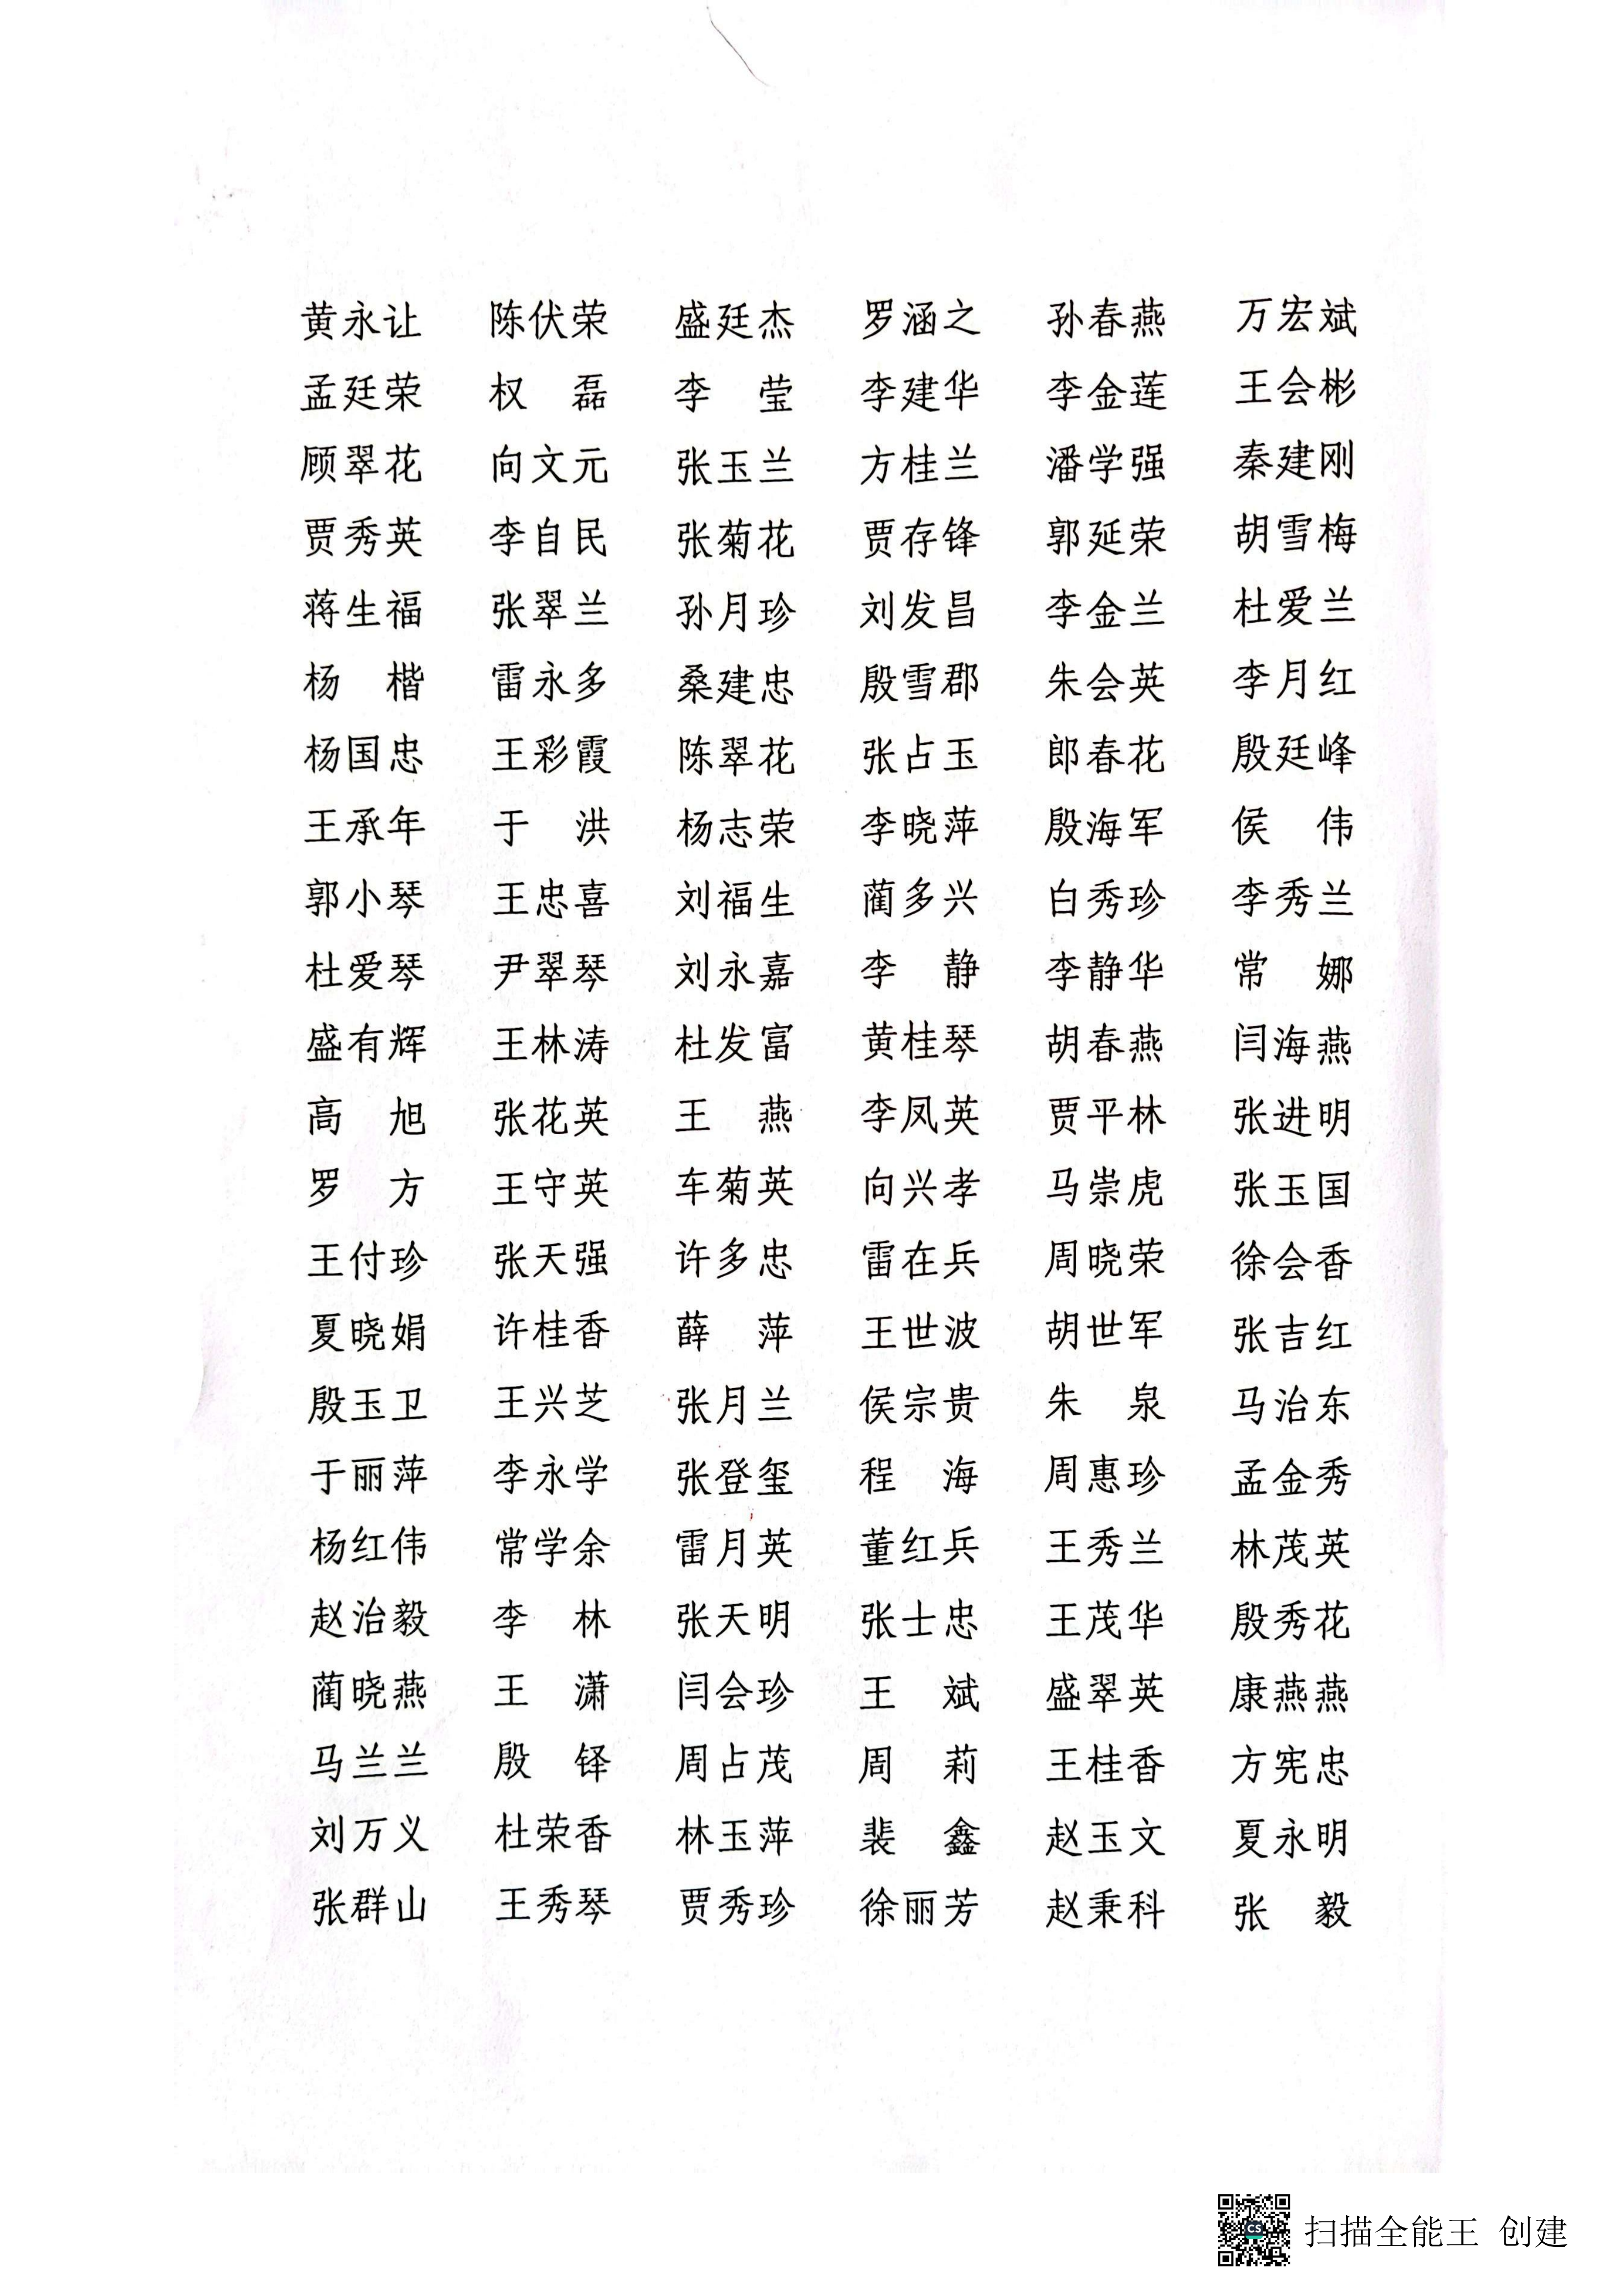 黄永让 陈伏荣 盛廷杰 罗涵之 孙春燕 万宏斌
孟廷荣 权 磊 李 莹 李建华 李金莲 王会彬
顾翠花 向文元 张玉兰 方桂兰 潘学强 秦建刚
贾秀英 李自民 张菊花 贾存锋 郭延荣 胡雪梅
蒋生福 张翠兰 孙月珍 刘发昌 李金兰 杜爱兰
杨 楷 雷永多 桑建忠 殷雪郡 朱会英 李月红
杨国忠 王彩霞 陈翠花 张占玉 郎春花 殷廷峰
王承年 于 洪 杨志荣 李晓萍 殷海军 侯 伟
郭小琴 王忠喜 刘福生 蔺多兴 白秀珍 李秀兰
杜爱琴 尹翠琴 刘永嘉 李 静 李静华 常 娜
盛有辉 王林涛 杜发富 黄桂琴 胡春燕 闫海燕
高 旭 张花英 王 燕 李凤英 贾平林 张进明
罗 方 王守英 车菊英 向兴孝 马崇虎 张玉国
王付珍 张天强 许多忠 雷在兵 周晓荣 徐会香
夏晓娟 许桂香 薛 萍 王世波 胡世军 张吉红
殷玉卫 王兴芝 张月兰 侯宗贵 朱 泉 马治东
于丽萍 李永学 张登玺 程 海 周惠珍 孟金秀
杨红伟 常学余 雷月英 董红兵 王秀兰 林茂英
赵治毅 李 林 张天明 张士忠 王茂华 殷秀花
蔺晓燕 王 潇 闫会珍 王 斌 盛翠英 康燕燕
马兰兰 殷 铎 周占茂 周 莉 王桂香 方宪忠
刘万义 杜荣香 林玉萍 裴 鑫 赵玉文 夏永明
张群山 王秀琴 贾秀珍 徐丽芳 赵秉科 张 毅
CS 扫描全能王 创建